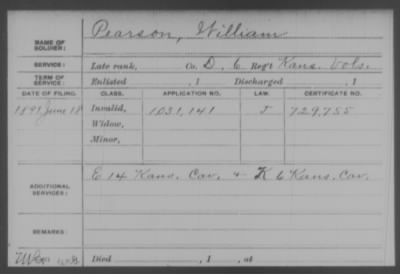 NAME OF SOLDIER: Pearson, William
SERVICE: Late rank, Co. D, 6 Reg't Kans. Vols.
TERM OF SERVICE: Enlisted , 1 Discharged , 1
DATE OF FILING. CLASS. APPLICATION NO. LAW. CERTIFICATE NO.
1891 June 18 Invalid, 1031,141 J 729,755
Widow,
Minor,
ADDITIONAL SERVICES: E 14 Kans. Cav. & K 6 Kans. Cav.
REMARKS:
Died , 1 , at